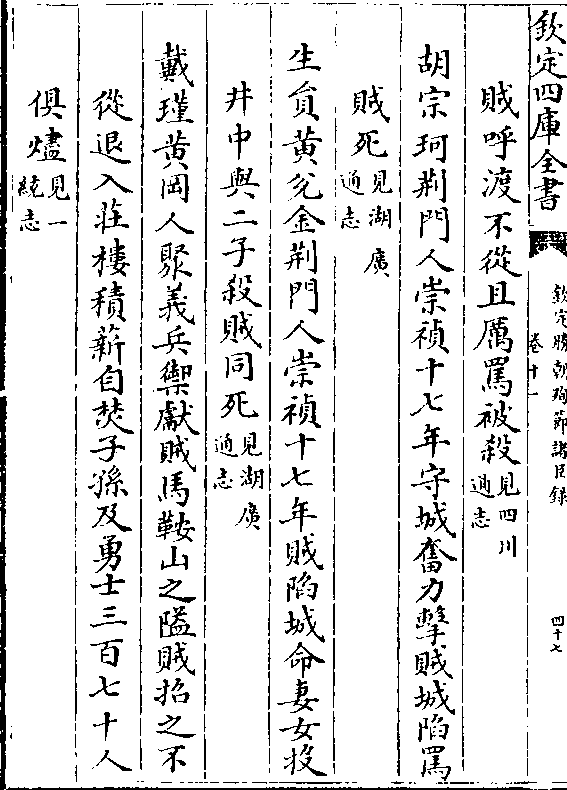 欽定四庫全書
欽定勝朝殉節諸臣錄
卷十一
四十七
賊呼渡不從且厲罵被殺見四川通志
胡宗珂荆門人崇禎十七年守城奮力擊賊城陷罵
賊死見湖廣通志
生員黄兊金荆門人崇禎十七年賊陷城命妻女投
井中與二子殺賊同死見湖廣通志
戴瑾黄岡人聚義兵禦獻賊馬鞍山之隘賊招之不
從退入莊樓積薪自焚子孫及勇士三百七十人
俱燼見一統志